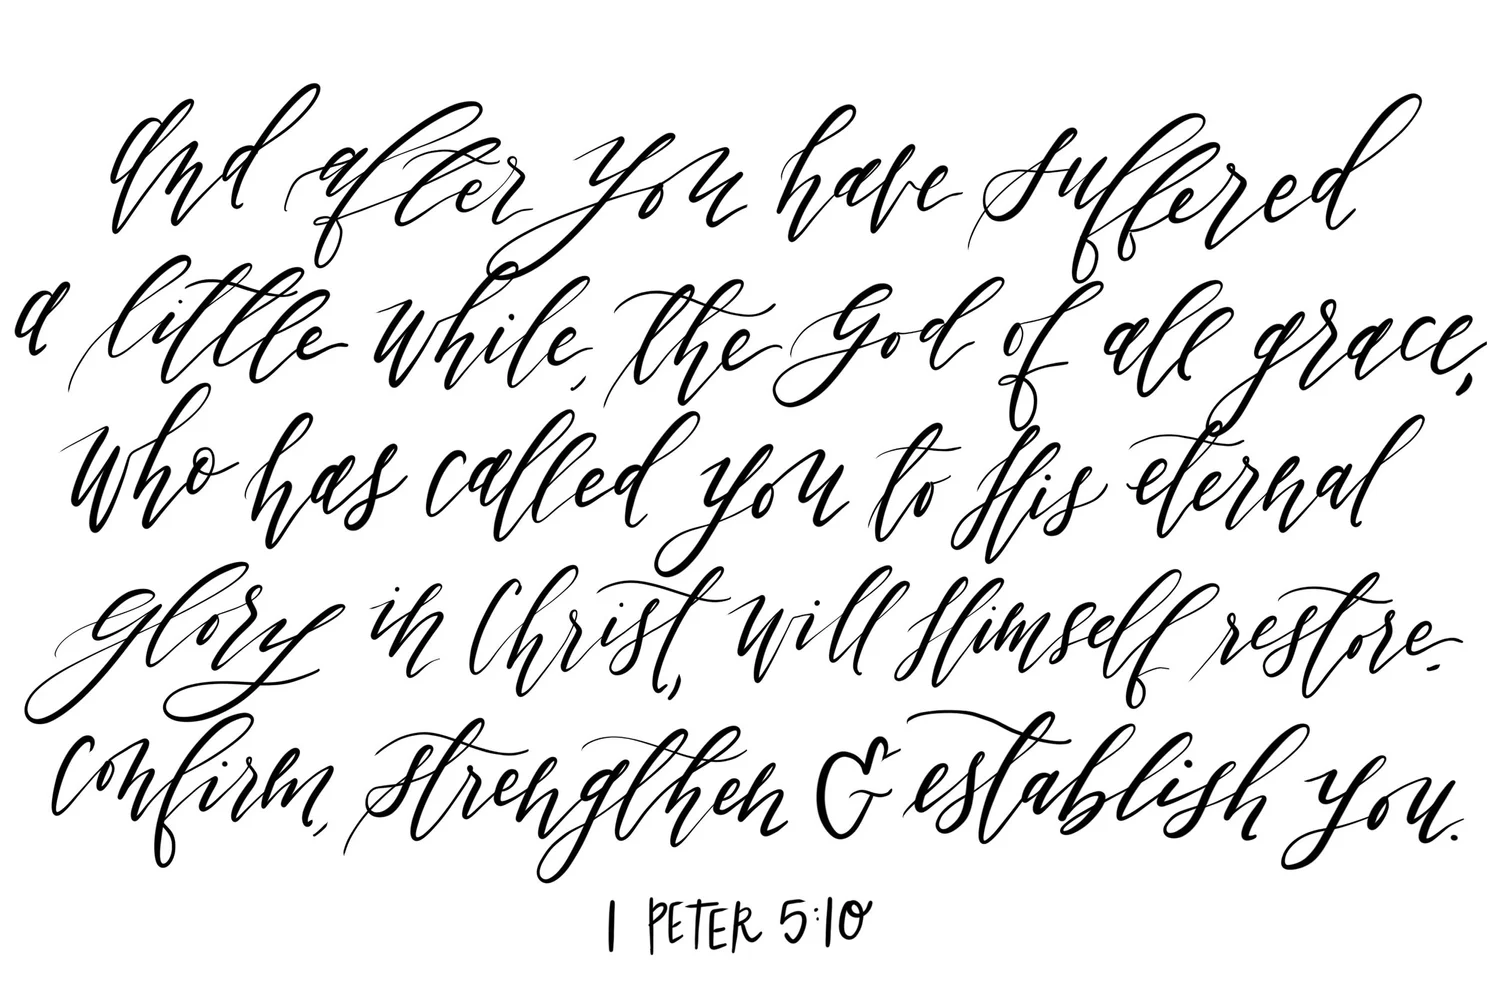 And after you have suffered
a little while, the God of all grace,
who has called you to His eternal
glory in Christ, will Himself restore.
confirm, strengthen & establish you.
1 PETER 5:10